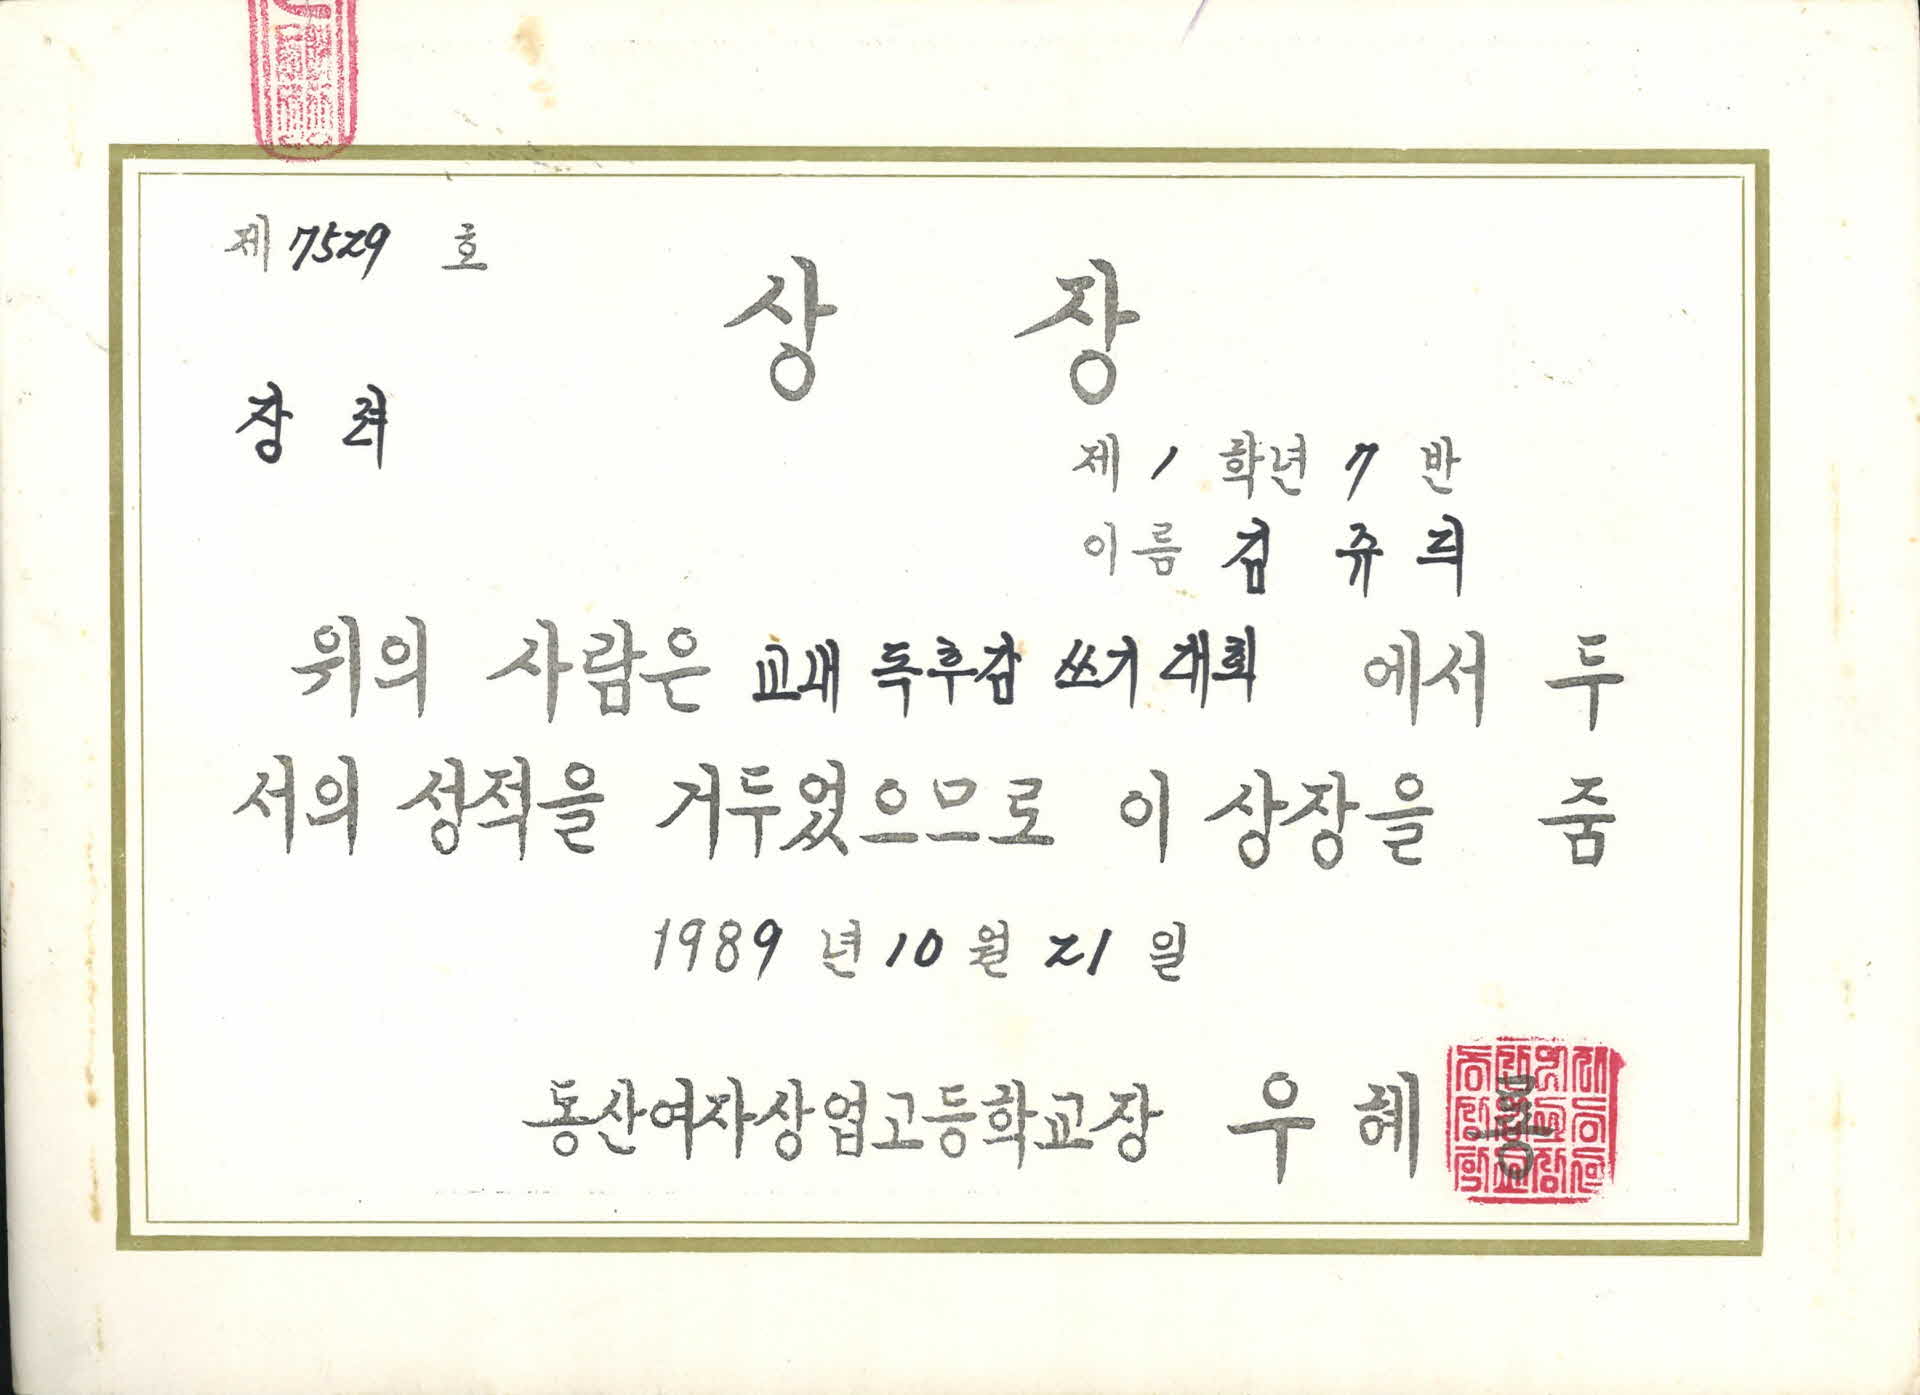 제 7529 호
상 장
장 려
제 1 학년 7 반
이름 김 쥬 리
위의 사람은 교내 독후감 쓰기 대회 에서 두
서의 성적을 거두었으므로 이 상장을 줌
1989 년 10 월 21 일
동산여자상업고등학교장 우 혜